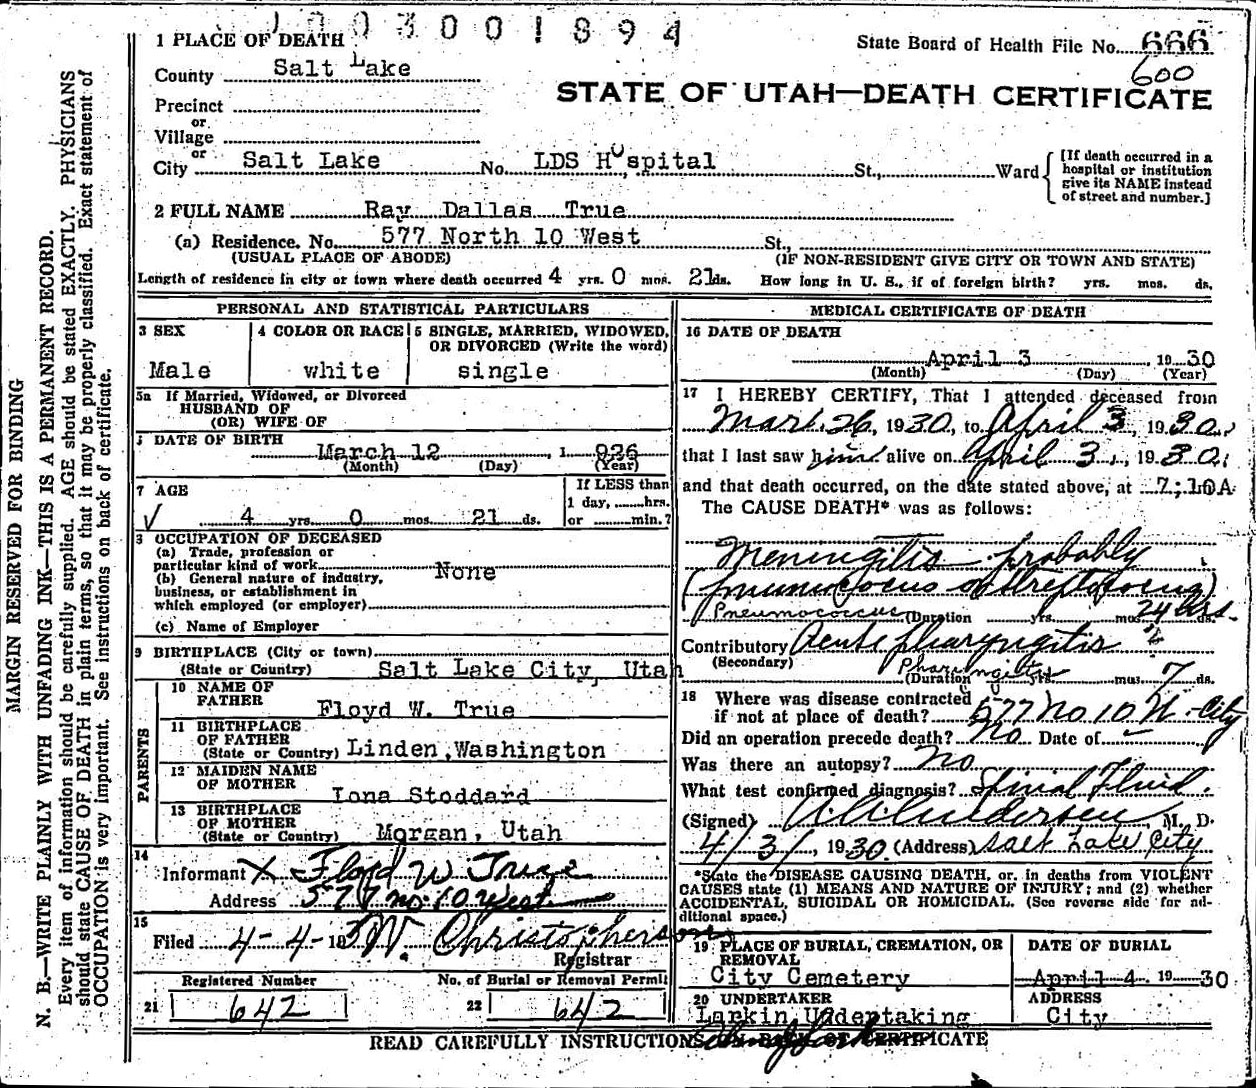 1003001894
1 PLACE OF DEATH
State Board of Health File No. 666
600
County Salt Lake
STATE OF UTAH—DEATH CERTIFICATE
Precinct
or
Village
or
City Salt Lake No. LDS Hospital St., Ward
[If death occurred in a
hospital or institution
give its NAME instead
of street and number.]
2 FULL NAME Ray Dallas True
(a) Residence. No. 577 North 10 West St.,
(USUAL PLACE OF ABODE) (IF NON-RESIDENT GIVE CITY OR TOWN AND STATE)
Length of residence in city or town where death occurred 4 yrs. 0 mos. 21 ds. How long in U. S., if of foreign birth? yrs. mos. ds.
PERSONAL AND STATISTICAL PARTICULARS
3 SEX
Male
4 COLOR OR RACE
white
5 SINGLE, MARRIED, WIDOWED,
OR DIVORCED (Write the word)
single
5a If Married, Widowed, or Divorced
HUSBAND OF
(OR) WIFE OF
DATE OF BIRTH
March 12, 1926
(Month) (Day) (Year)
7 AGE
4 yrs. 0 mos. 21 ds.
If LESS than
1 day, hrs.
or min.?
8 OCCUPATION OF DECEASED
(a) Trade, profession or
particular kind of work None
(b) General nature of industry,
business, or establishment in
which employed (or employer)
(c) Name of Employer
9 BIRTHPLACE (City or town)
(State or Country) Salt Lake City, Utah
PARENTS
10 NAME OF
FATHER Floyd W. True
11 BIRTHPLACE
OF FATHER
(State or Country) Linden, Washington
12 MAIDEN NAME
OF MOTHER Iona Stoddard
13 BIRTHPLACE
OF MOTHER
(State or Country) Morgan, Utah
14
Informant X Floyd W True
Address 577 no. 10 West
15
Filed 4-4-193 W. Christopherson
Registrar
Registered Number
21 642
No. of Burial or Removal Permit
22 642
MEDICAL CERTIFICATE OF DEATH
16 DATE OF DEATH
April 3 1930
(Month) (Day) (Year)
17 I HEREBY CERTIFY, That I attended deceased from
Mar. 26, 1930, to April 3, 1930,
that I last saw him alive on April 3, 1930,
and that death occurred, on the date stated above, at 7;10A
The CAUSE DEATH* was as follows:
Meningitis probably
(pneumococcus or streptococcus)
Pneumococcus (Duration yrs. mos. 24 hrs ds.
Contributory Acute pharyngitis
(Secondary) Pharyngitis
(Duration yrs. mos. 7 ds.
18 Where was disease contracted
if not at place of death? 577 No 10 W. City
Did an operation precede death? No Date of
Was there an autopsy? No
What test confirmed diagnosis? Spinal Fluid.
(Signed) M. D.
4/3/, 1930 (Address) Salt Lake City
*State the DISEASE CAUSING DEATH, or, in deaths from VIOLENT
CAUSES state (1) MEANS AND NATURE OF INJURY; and (2) whether
ACCIDENTAL, SUICIDAL OR HOMICIDAL. (See reverse side for ad-
ditional space.)
19 PLACE OF BURIAL, CREMATION, OR
REMOVAL
City Cemetery
DATE OF BURIAL
April 4 1930
20 UNDERTAKER
Larkin Undertaking
ADDRESS
City
READ CAREFULLY INSTRUCTIONS ON BACK OF CERTIFICATE
MARGIN RESERVED FOR BINDING
N. B.—WRITE PLAINLY WITH UNFADING INK—THIS IS A PERMANENT RECORD.
Every item of information should be carefully supplied. AGE should be stated EXACTLY. PHYSICIANS
should state CAUSE OF DEATH in plain terms, so that it may be properly classified. Exact statement of
OCCUPATION is very important. See instructions on back of certificate.